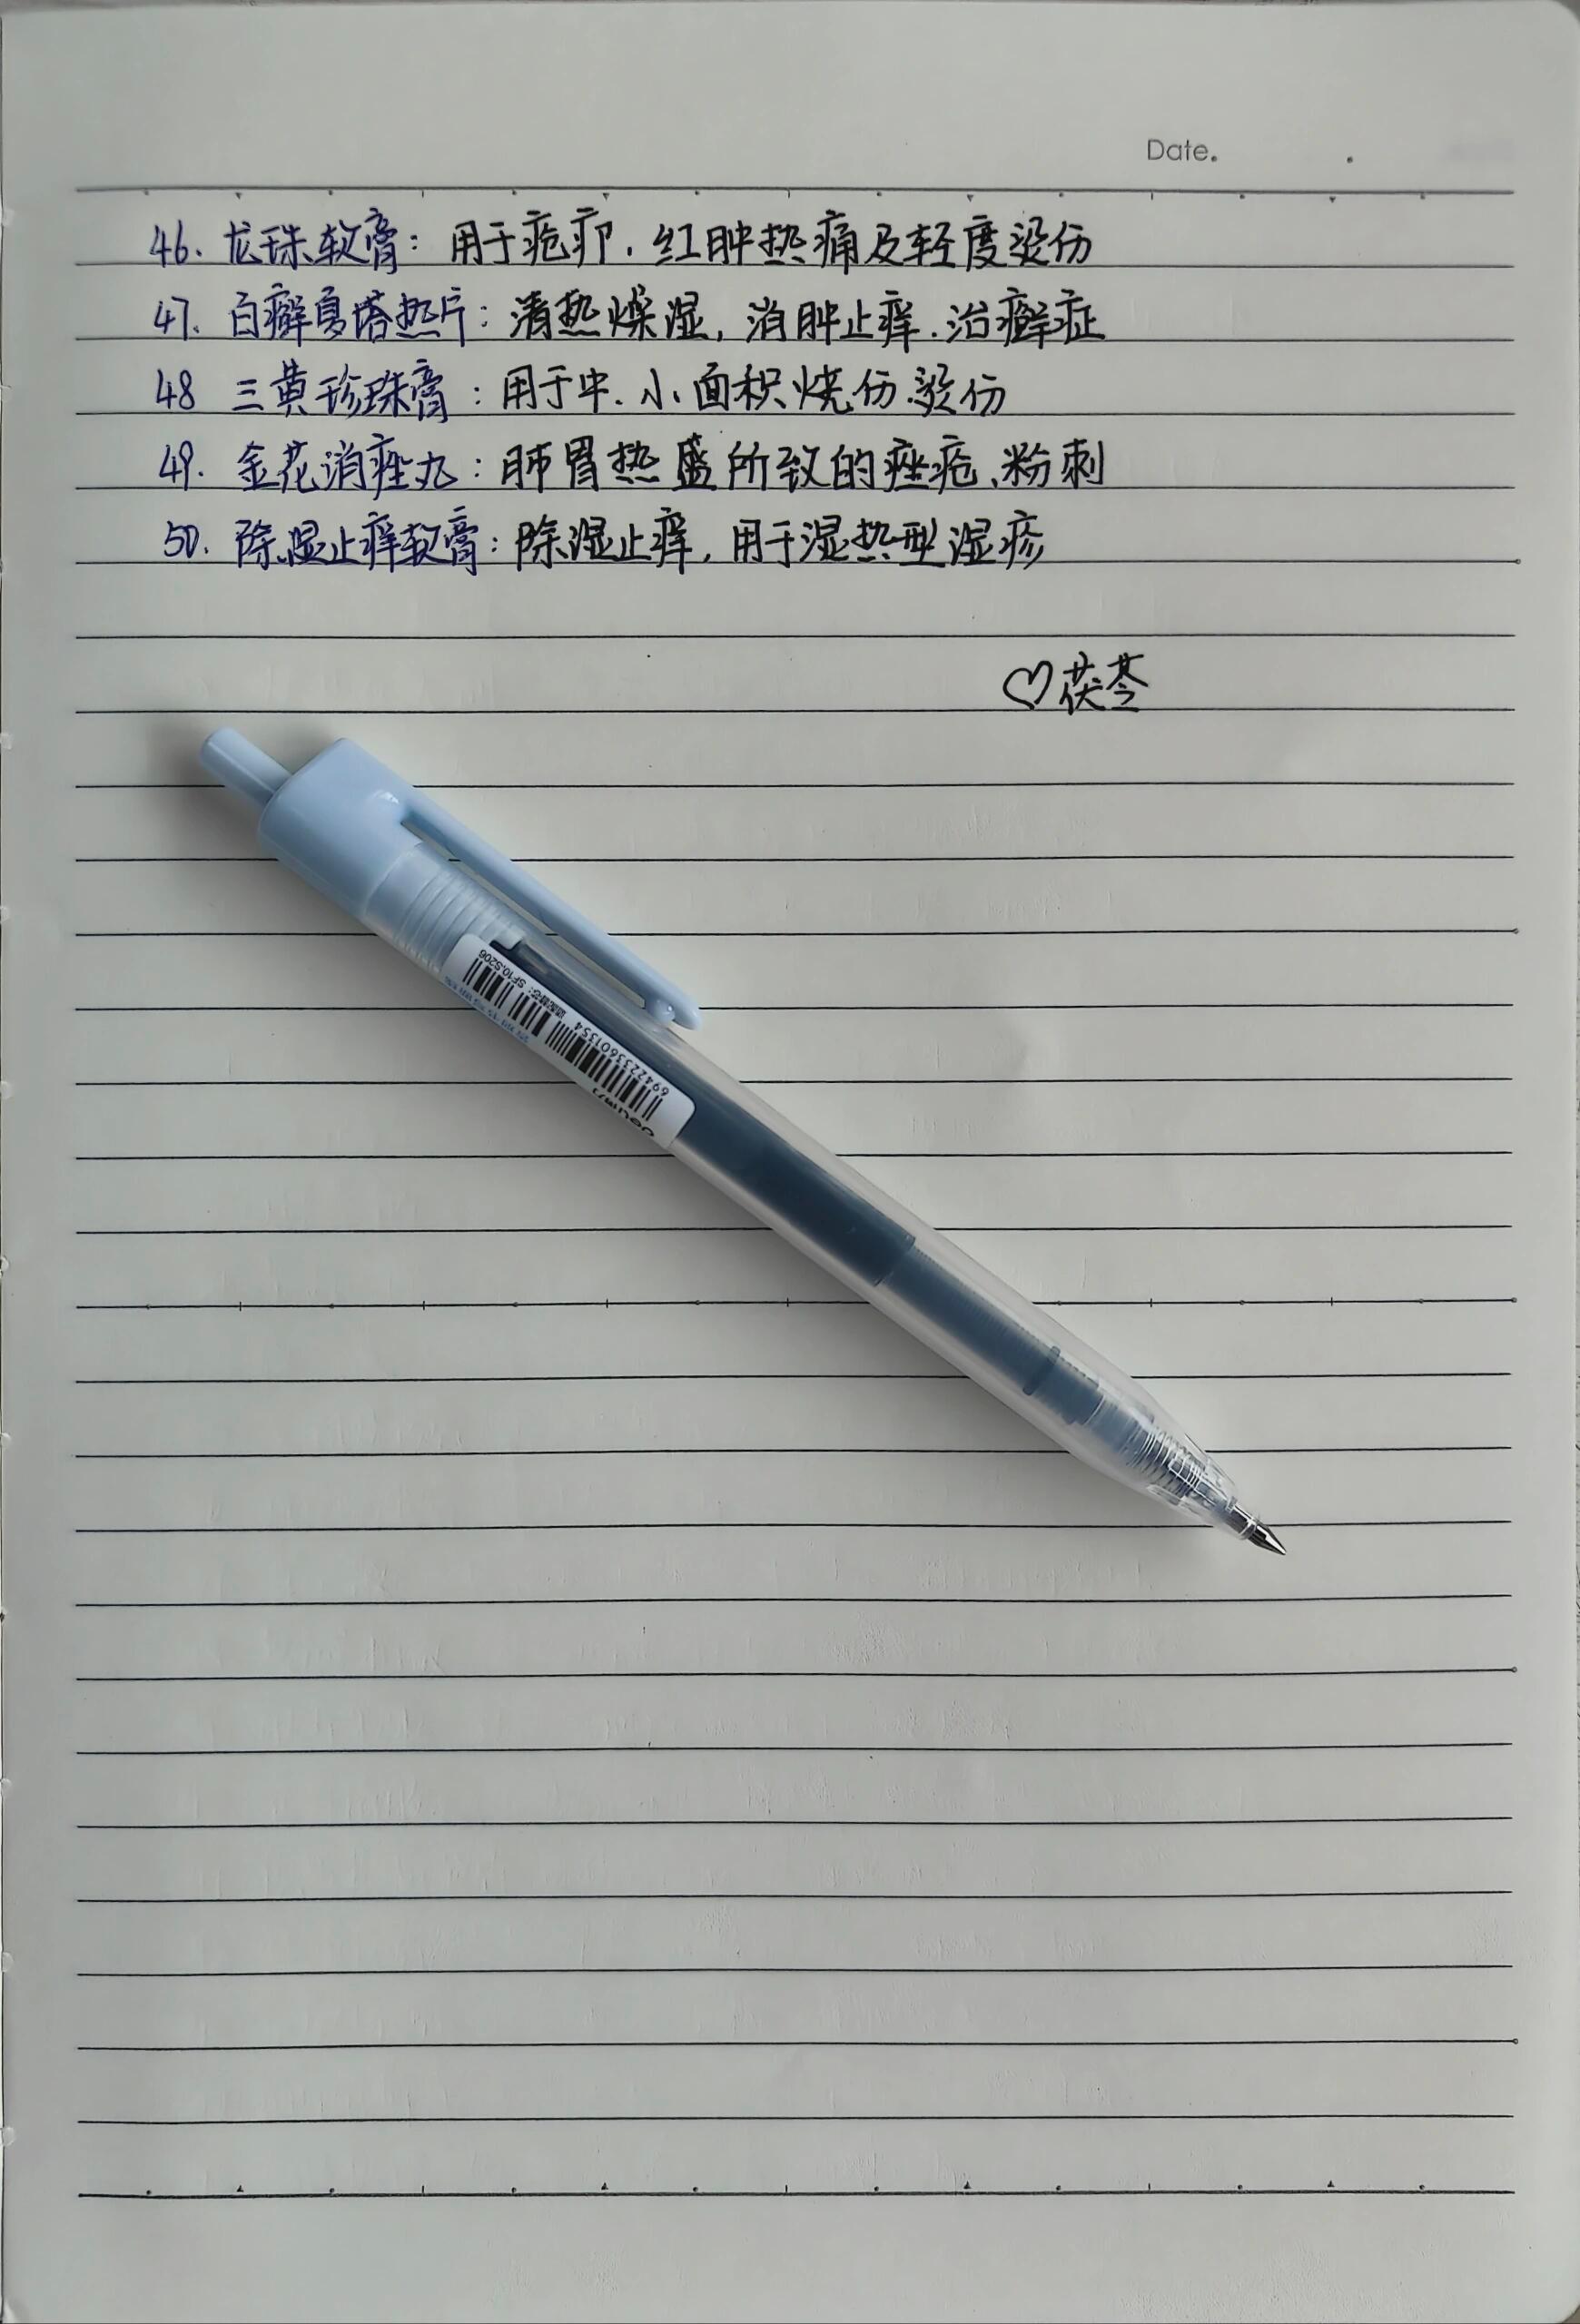 Date.
46. 龙珠软膏：用于疮疖.红肿热痛及轻度烫伤
47. 白癣夏塔热片：清热燥湿,消肿止痒.治癣症
48 三黄珍珠膏：用于中.小面积烧伤.烫伤
49. 金花消痤丸：肺胃热盛所致的痤疮、粉刺
50. 除湿止痒软膏：除湿止痒,用于湿热型湿疹
♡茯苓
适配替芯：SF10,S206
6942233601354